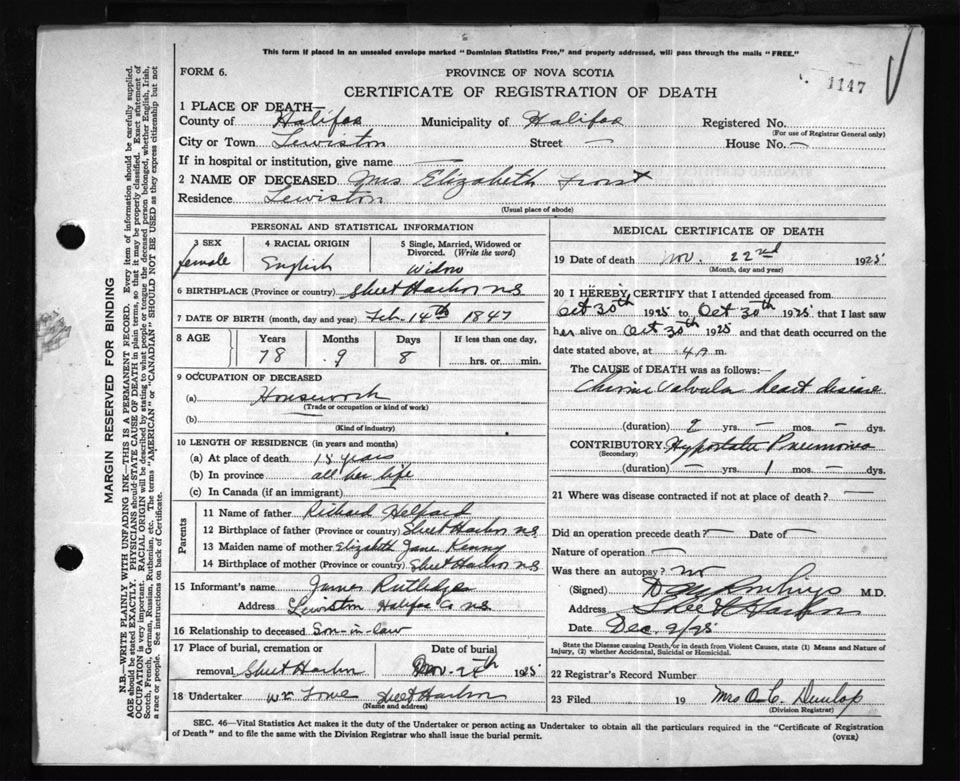 This form if placed in an unsealed envelope marked "Dominion Statistics Free," and properly addressed, will pass through the mails "FREE."
FORM 6.
PROVINCE OF NOVA SCOTIA
1147
CERTIFICATE OF REGISTRATION OF DEATH
1 PLACE OF DEATH—
County of Halifax Municipality of Halifax Registered No.
(For use of Registrar General only)
City or Town Lewiston Street — House No. —
If in hospital or institution, give name —
2 NAME OF DECEASED Mrs Elizabeth Frost
Residence Lewiston
(Usual place of abode)
PERSONAL AND STATISTICAL INFORMATION
3 SEX female
4 RACIAL ORIGIN English
5 Single, Married, Widowed or Divorced. (Write the word) Widow
6 BIRTHPLACE (Province or country) Sheet Harbor N.S
7 DATE OF BIRTH (month, day and year) Feb. 14th 1847
8 AGE Years Months Days If less than one day,
78 9 8 hrs. or min.
9 OCCUPATION OF DECEASED
(a) Housework
(Trade or occupation or kind of work)
(b)
(Kind of industry)
10 LENGTH OF RESIDENCE (in years and months)
(a) At place of death 15 years
(b) In province all her life
(c) In Canada (if an immigrant)
Parents
11 Name of father Richard
12 Birthplace of father (Province or country) Sheet Harbor N.S
13 Maiden name of mother Elizabeth Jane Kenny
14 Birthplace of mother (Province or country) Sheet Harbor N.S
15 Informant's name James Rutledge
Address Lewiston Halifax Co N.S
16 Relationship to deceased Son-in-law
17 Place of burial, cremation or Date of burial
removal Sheet Harbor Nov. 1925
18 Undertaker Wm Lowe Sheet Harbor
(Name and address)
MEDICAL CERTIFICATE OF DEATH
19 Date of death Nov. 22nd 1925
(Month, day and year)
20 I HEREBY CERTIFY that I attended deceased from
Oct 30th 1925 to Oct 30th 1925 that I last saw
her alive on Oct 30th 1925 and that death occurred on the
date stated above, at 4 A m.
The CAUSE of DEATH was as follows:—
Chronic Valvula heart disease
(duration) 2 yrs. — mos. — dys.
CONTRIBUTORY Hypostatic Pneumonia
(Secondary)
(duration) — yrs. 1 mos. — dys.
21 Where was disease contracted if not at place of death? —
Did an operation precede death? — Date of —
Nature of operation —
Was there an autopsy? no
(Signed) M.D.
Address Sheet Harbor
Date Dec. 9/25
State the Disease causing Death, or in death from Violent Causes, state (1) Means and Nature of
Injury, (2) whether Accidental, Suicidal or Homicidal.
22 Registrar's Record Number
23 Filed 19 Mrs O. C. Dunlop
(Division Registrar)
SEC. 46—Vital Statistics Act makes it the duty of the Undertaker or person acting as Undertaker to obtain all the particulars required in the "Certificate of Registration
of Death" and to file the same with the Division Registrar who shall issue the burial permit.
(OVER)
MARGIN RESERVED FOR BINDING
N.B.—WRITE PLAINLY WITH UNFADING INK—THIS IS A PERMANENT RECORD. Every item of information should be carefully supplied.
AGE should be stated EXACTLY. PHYSICIANS should STATE CAUSE OF DEATH in plain terms, so that it may be properly classified. Exact statement of
OCCUPATION is very important. RACIAL ORIGIN will be described by stating to what people or tongue the deceased person belonged, whether English, Irish,
Scotch, French, German, Russian, Ruthenian, etc. The terms "AMERICAN" or "CANADIAN" SHOULD NOT BE USED as they express citizenship but not
a race or people. See instructions on back of Certificate.